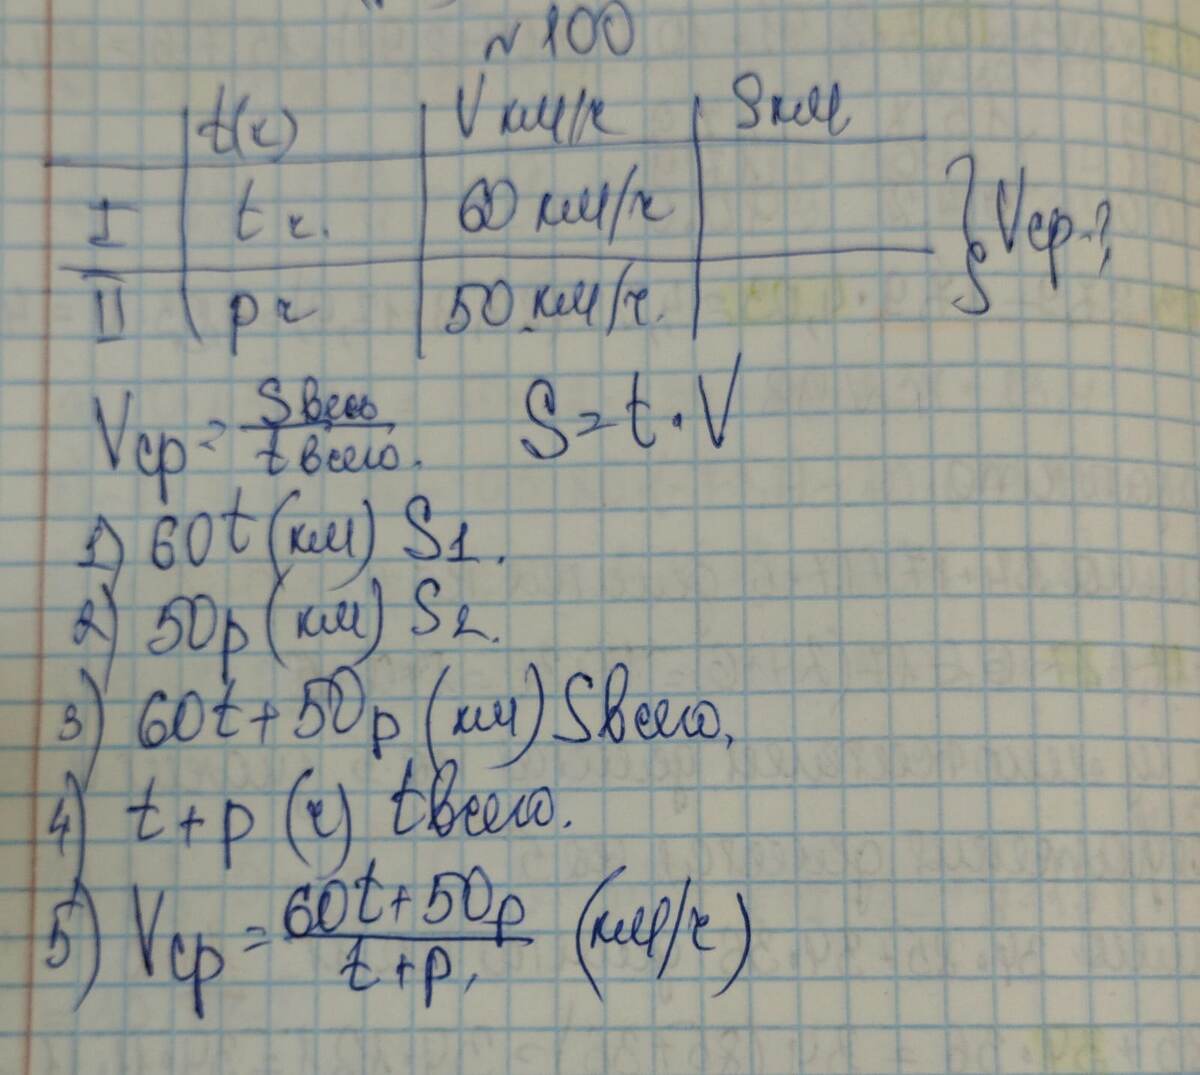 № 100
t(ч) V км/ч S км
I t ч. 60 км/ч
II p ч 50 км/ч.
} Vср-?
Vср = Sвесь / tвсего. S = t · V
1) 60t (км) S1.
2) 50p (км) S2.
3) 60t + 50p (км) Sвсего,
4) t + p (ч) tвсего.
5) Vср = 60t + 50p / t + p, (км/ч)